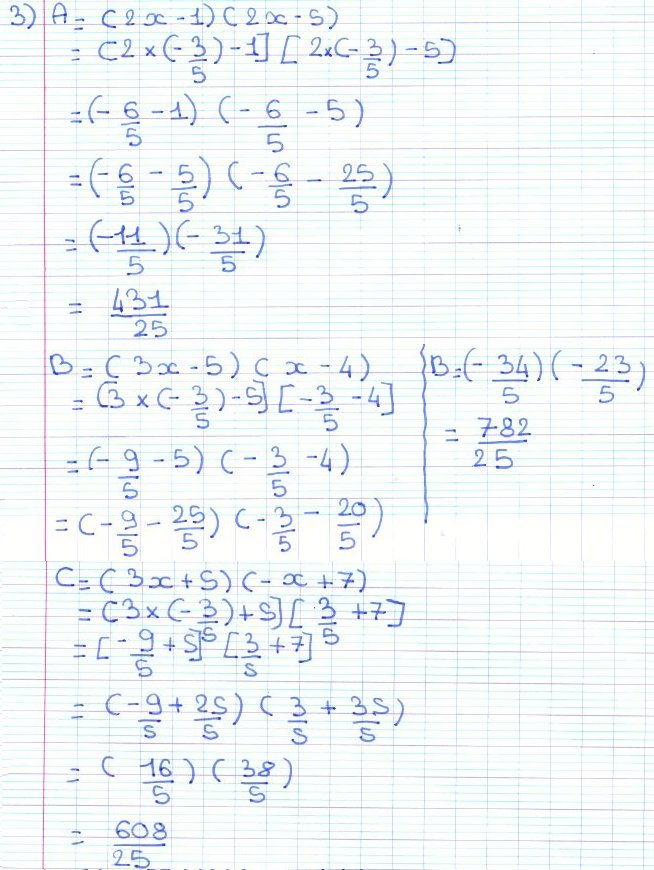 3) A = (2x - 1) (2x - 5)
= (2 × (-3/5) - 1] [2×(-3/5) - 5]
= (-6/5 - 1) (-6/5 - 5)
= (-6/5 - 5/5) (-6/5 - 25/5)
= (-11/5) (-31/5)
= 431/25
B = (3x - 5) (x - 4)
= (3 × (-3/5) - 5] [-3/5 - 4]
= (-9/5 - 5) (-3/5 - 4)
= (-9/5 - 25/5) (-3/5 - 20/5)
B = (-34/5) (-23/5)
= 782/25
C = (3x + 5) (-x + 7)
= (3 × (-3/5) + 5] [3/5 + 7]
= [-9/5 + 5] [3/5 + 7]
= (-9/5 + 25/5) (3/5 + 35/5)
= (16/5) (38/5)
= 608/25